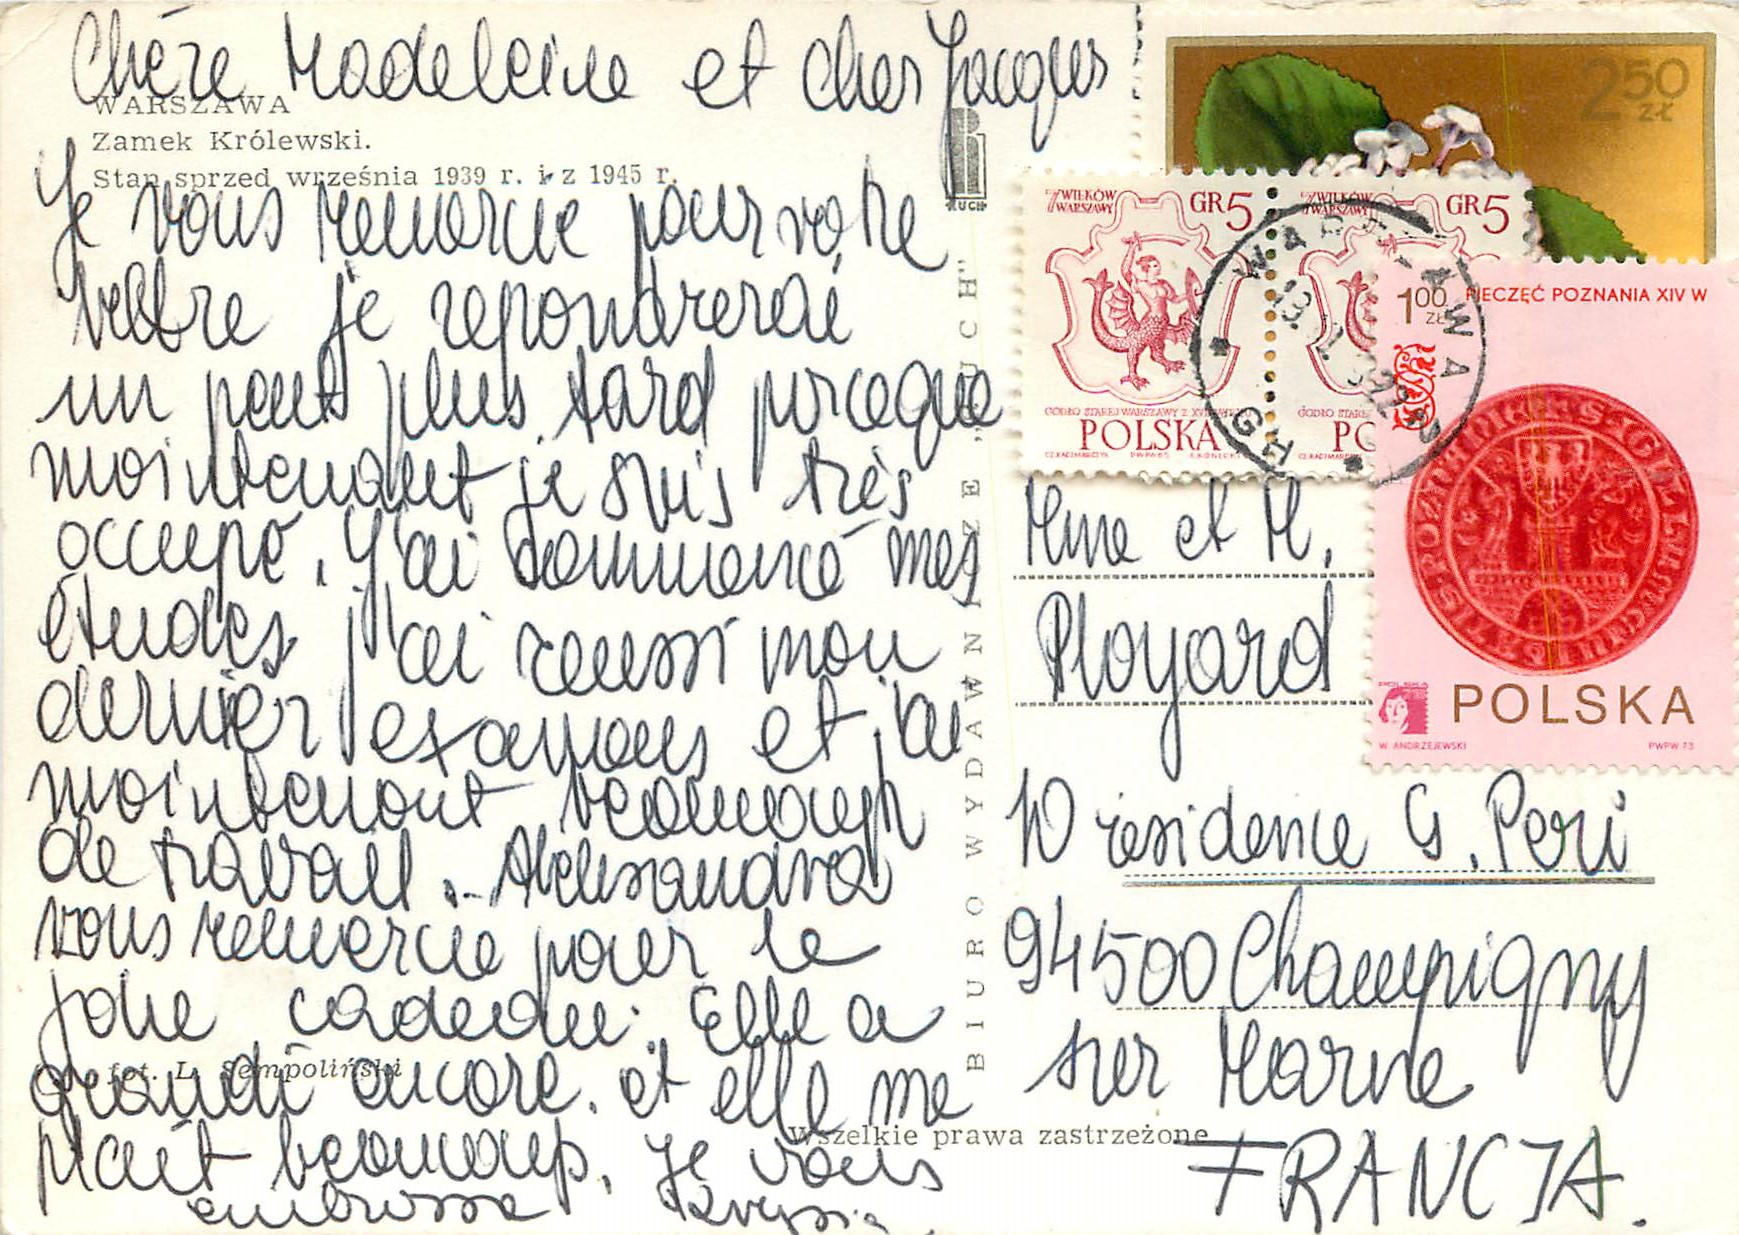 Chère Madeleine et cher Jacques
WARSZAWA
Zamek Królewski.
Stan sprzed września 1939 r. i z 1945 r.
Je vous remercie pour votre
lettre je reponderai
un peut plus tard parceque
maintenant je suis très
occupé. J'ai commencé mes
études, j'ai reussi mon
dernier examens et j'ai
maintenant beaucoup
de travail. Aleksandra
vous remercie pour le
jolie cadeau. Elle a
grandi encore. et elle me
plaît beaucoup. Je vous
embrosse Krysia.
fot. L. Sempoliński
Wszelkie prawa zastrzeżone
BIURO WYDAWNICZE „RUCH"
RUCH
250 zł
7 WIEKÓW WARSZAWY
GR 5
GODŁO STAREJ WARSZAWY Z XVI WIEKU
POLSKA
CZ. KACZMARCZYK PWPW 65
7 WIEKÓW WARSZAWY
GR 5
GODŁO STARE
PO
CZ. KACZMARCZYK
WARSZAWA
1 00 zł
PIECZĘĆ POZNANIA XIV W
POLSKA
W. ANDRZEJEWSKI
PWPW 73
Mme et M.
Ployard
10 residence G. Peri
94500 Champigny
sur Marne
FRANCJA.